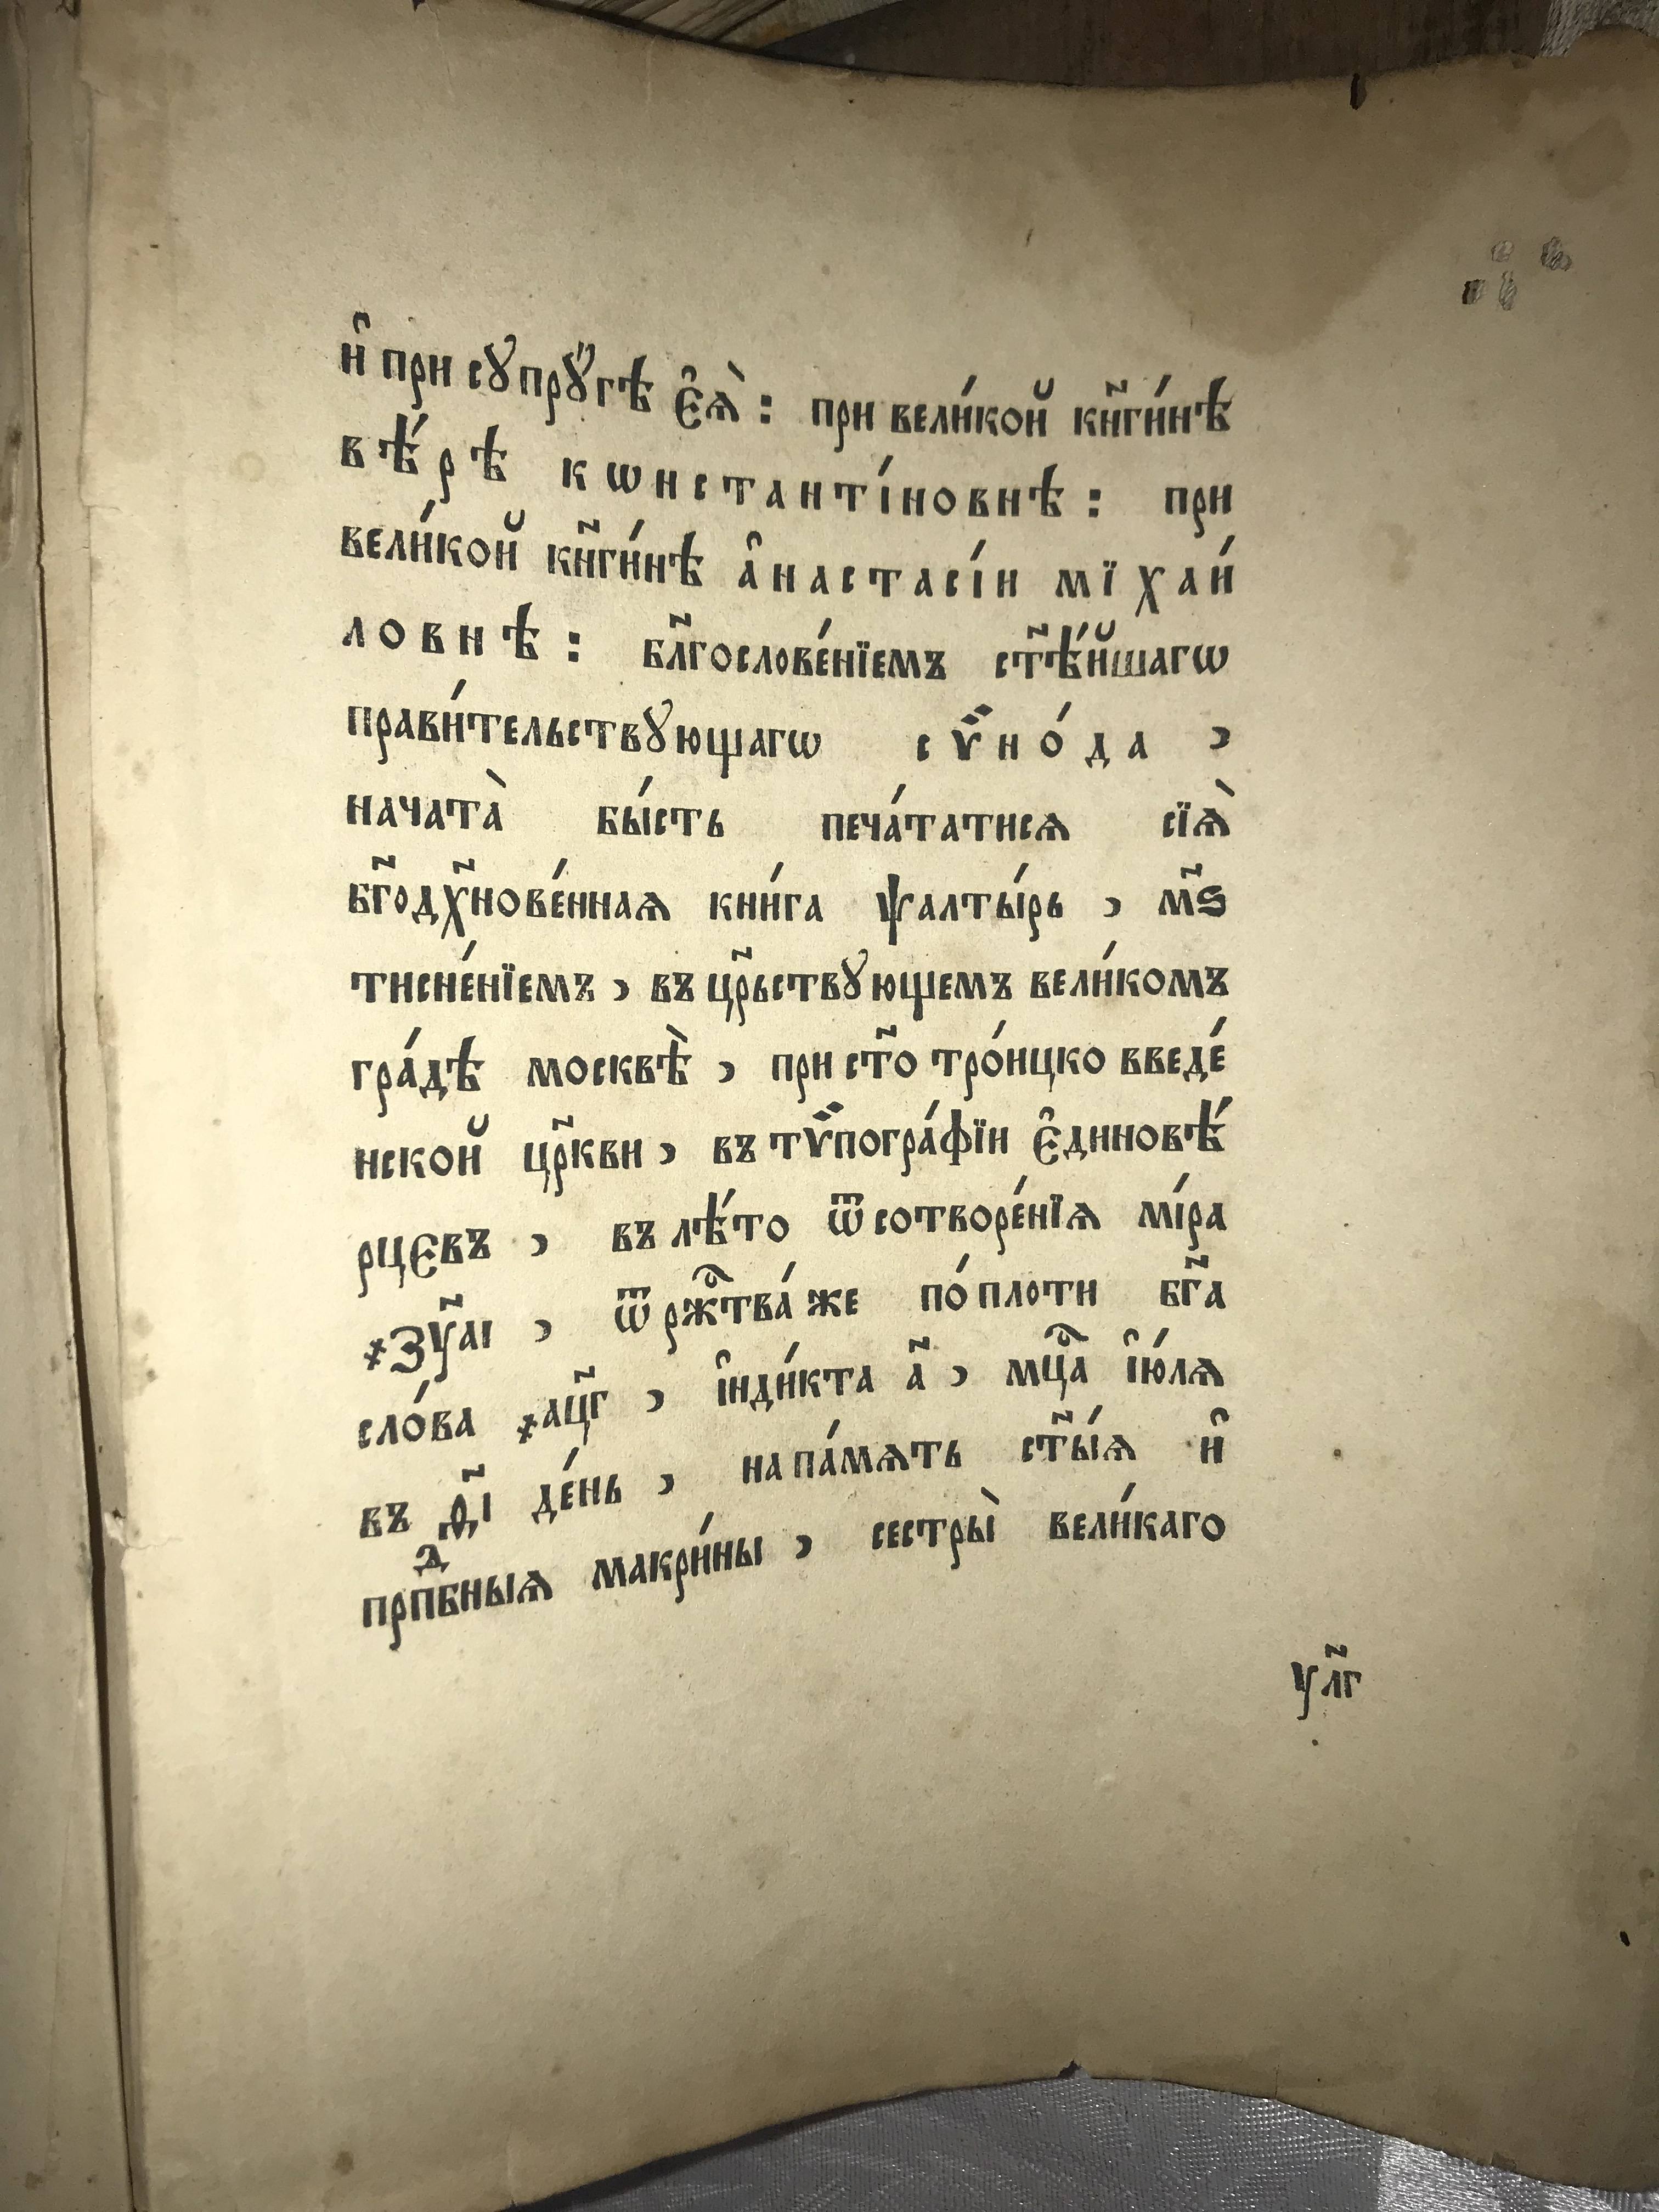 и҆ при сꙋпрꙋ́гѣ є҆ѧ̀: при вели́кой кн҃ги́нѣ
вѣ́рѣ кѡнстанті́новнѣ: при
вели́кой кн҃ги́нѣ а҆настасі́и мїхаи́
ловнѣ: бл҃гослове́нїемъ ст҃ѣ́йшагѡ
прави́тельствꙋющагѡ сѷно́да ,
начата̀ бы́сть печа́татисѧ сїѧ̀
бг҃одх҃нове́ннаѧ кни́га ѱалты́рь , м҃ѕ
тисне́нїемъ , въ цр҃ьствꙋющемъ вели́комъ
гра́дѣ москвѣ̀ , при ст҃о тро́ицко введе́
нской цр҃кви , въ тѷпогра́фїи є҆диновѣ́
рцєвъ , въ лѣ́то ѿ сотворе́нїѧ мі́ра
҂зу҃аі , ѿ рж҇тва́ же по́ плоти бг҃а
сло́ва ҂ац҃г , і҆нди́кта а҃ , мц҇а і҆ю́лѧ
въ ѳ҃і де́нь , на па́мѧть ст҃ы́ѧ и҆
прпⷣбныѧ макри́ны , сестры̀ вели́каго
ул҃г